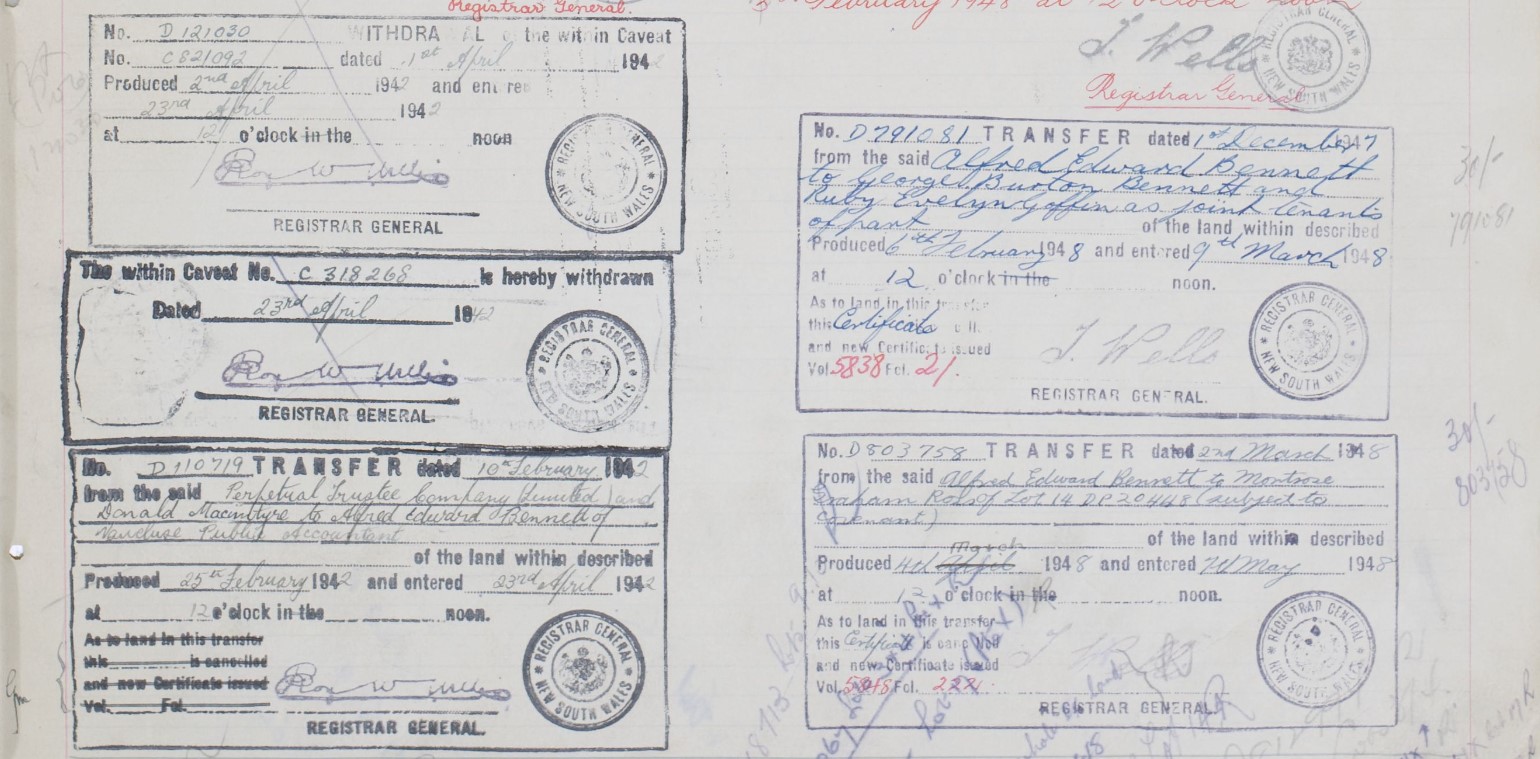 Registrar General.
No. D 121030 WITHDRA AL of the within Caveat
No. C821092 dated 1st April 1942
Produced 2nd April 1942 and entered
23rd April 1942
at 12 o'clock in the noon
Roy W Willis
REGISTRAR GENERAL
REGISTRAR GENERAL NEW SOUTH WALES
The within Caveat No. C 318268 is hereby withdrawn
Dated 23rd April 1942
Roy W Willis
REGISTRAR GENERAL.
REGISTRAR GENERAL NEW SOUTH WALES
No. D 110719 TRANSFER dated 10th February 1942
from the said Perpetual Trustee Company (Limited) and
Donald Macintyre to Alfred Edward Bennett of
Vaucluse Public Accountant
of the land within described
Produced 25th February 1942 and entered 23rd April 1942
at 12 o'clock in the noon.
As to land in this transfer
this is cancelled
and new Certificate issued
Vol. Fol.
Roy W Willis
REGISTRAR GENERAL.
REGISTRAR GENERAL NEW SOUTH WALES
February 1948 at 12 o'clock noon
J. Wells
Registrar General
REGISTRAR GENERAL NEW SOUTH WALES
No. D791081 TRANSFER dated 1st December 1947
from the said Alfred Edward Bennett
to George Burton Bennett and
Ruby Evelyn Goffin as joint tenants
of part of the land within described
Produced 6th February 1948 and entered 9th March 1948
at 12 o'clock in the noon.
As to land in this transfer
this Certificate
and new Certificate issued
Vol. 5838 Fol. 21.
J. Wells
REGISTRAR GENERAL.
REGISTRAR GENERAL NEW SOUTH WALES
30/-
791081
No. D803758 TRANSFER dated 2nd March 1948
from the said Alfred Edward Bennett to Montrose
Graham Ross of Lot 14 DP20448 (subject to
covenant)
of the land within described
Produced 4th April March 1948 and entered May 1948
at 12 o'clock in the noon.
As to land in this transfer
this Certificate is cancelled
and new Certificate issued
Vol. 5848 Fol. 222.
REGISTRAR GENERAL.
REGISTRAR GENERAL NEW SOUTH WALES
30/-
803758